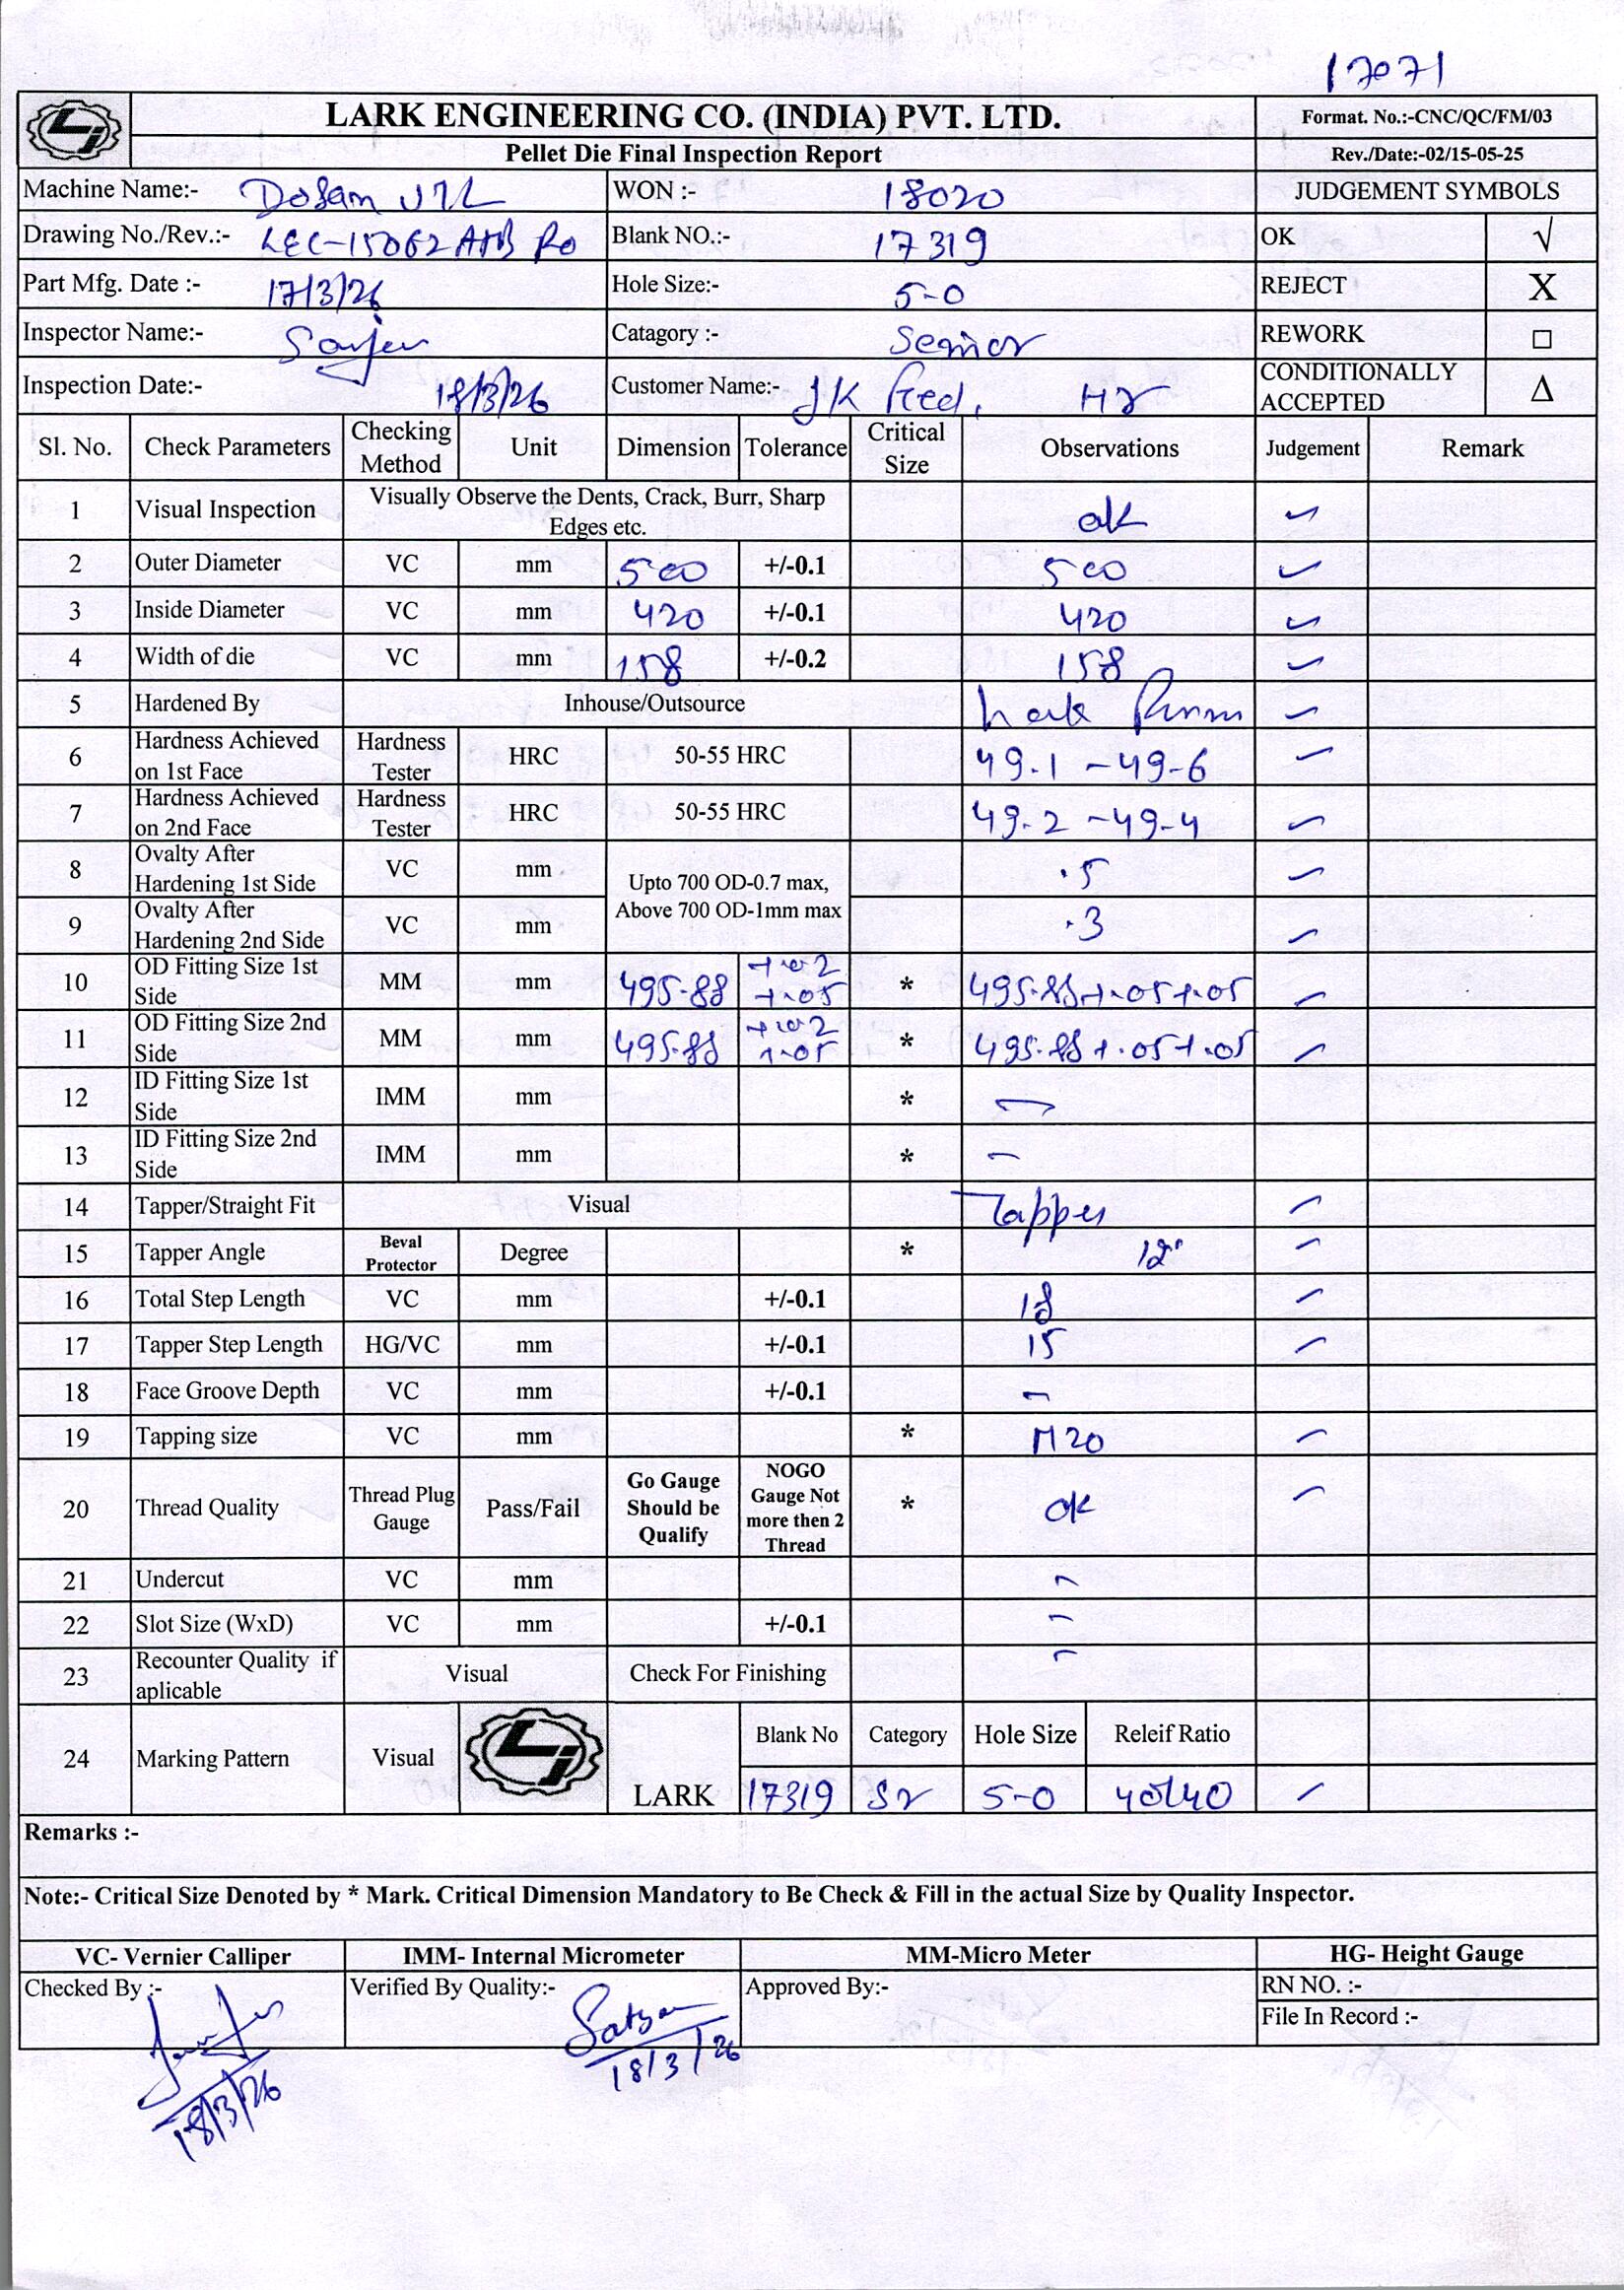 17071
LARK ENGINEERING CO. (INDIA) PVT. LTD.
Format. No.:-CNC/QC/FM/03
Pellet Die Final Inspection Report
Rev./Date:-02/15-05-25
Machine Name:-
WON :- 18020
JUDGEMENT SYMBOLS
Drawing No./Rev.:- LEC-15062 A
Blank NO.:- 17319
OK √
Part Mfg. Date :- 17/3/26
Hole Size:- 5-0
REJECT X
Inspector Name:-
Catagory :- Senior
REWORK □
Inspection Date:- 18/3/26
Customer Name:- JK Feed, Hr
CONDITIONALLY ACCEPTED Δ
Sl. No. Check Parameters Checking Method Unit Dimension Tolerance Critical Size Observations Judgement Remark
1 Visual Inspection Visually Observe the Dents, Crack, Burr, Sharp Edges etc. ok ✓
2 Outer Diameter VC mm 500 +/-0.1 500 ✓
3 Inside Diameter VC mm 420 +/-0.1 420 ✓
4 Width of die VC mm 158 +/-0.2 158 ✓
5 Hardened By Inhouse/Outsource Lark ✓
6 Hardness Achieved on 1st Face Hardness Tester HRC 50-55 HRC 49.1 -49-6 ✓
7 Hardness Achieved on 2nd Face Hardness Tester HRC 50-55 HRC 49.2 -49-4 ✓
8 Ovalty After Hardening 1st Side VC mm Upto 700 OD-0.7 max, Above 700 OD-1mm max .5 ✓
9 Ovalty After Hardening 2nd Side VC mm .3 ✓
10 OD Fitting Size 1st Side MM mm 495.88 +.05 * 495.88+.05+.05 ✓
11 OD Fitting Size 2nd Side MM mm 495.88 +.05 * 495.88+.05+.05 ✓
12 ID Fitting Size 1st Side IMM mm * -
13 ID Fitting Size 2nd Side IMM mm * -
14 Tapper/Straight Fit Visual Tapper ✓
15 Tapper Angle Beval Protector Degree * 12° ✓
16 Total Step Length VC mm +/-0.1 18 ✓
17 Tapper Step Length HG/VC mm +/-0.1 15 ✓
18 Face Groove Depth VC mm +/-0.1 -
19 Tapping size VC mm * M20 ✓
20 Thread Quality Thread Plug Gauge Pass/Fail Go Gauge Should be Qualify NOGO Gauge Not more then 2 Thread * ok ✓
21 Undercut VC mm -
22 Slot Size (WxD) VC mm +/-0.1 -
23 Recounter Quality if aplicable Visual Check For Finishing -
24 Marking Pattern Visual LARK Blank No Category Hole Size Releif Ratio
17319 Sr 5-0 40/40 ✓
Remarks :-
Note:- Critical Size Denoted by * Mark. Critical Dimension Mandatory to Be Check & Fill in the actual Size by Quality Inspector.
VC- Vernier Calliper IMM- Internal Micrometer MM-Micro Meter HG- Height Gauge
Checked By :- Verified By Quality:- Approved By:- RN NO. :-
File In Record :-
18/3/26
18/3/26